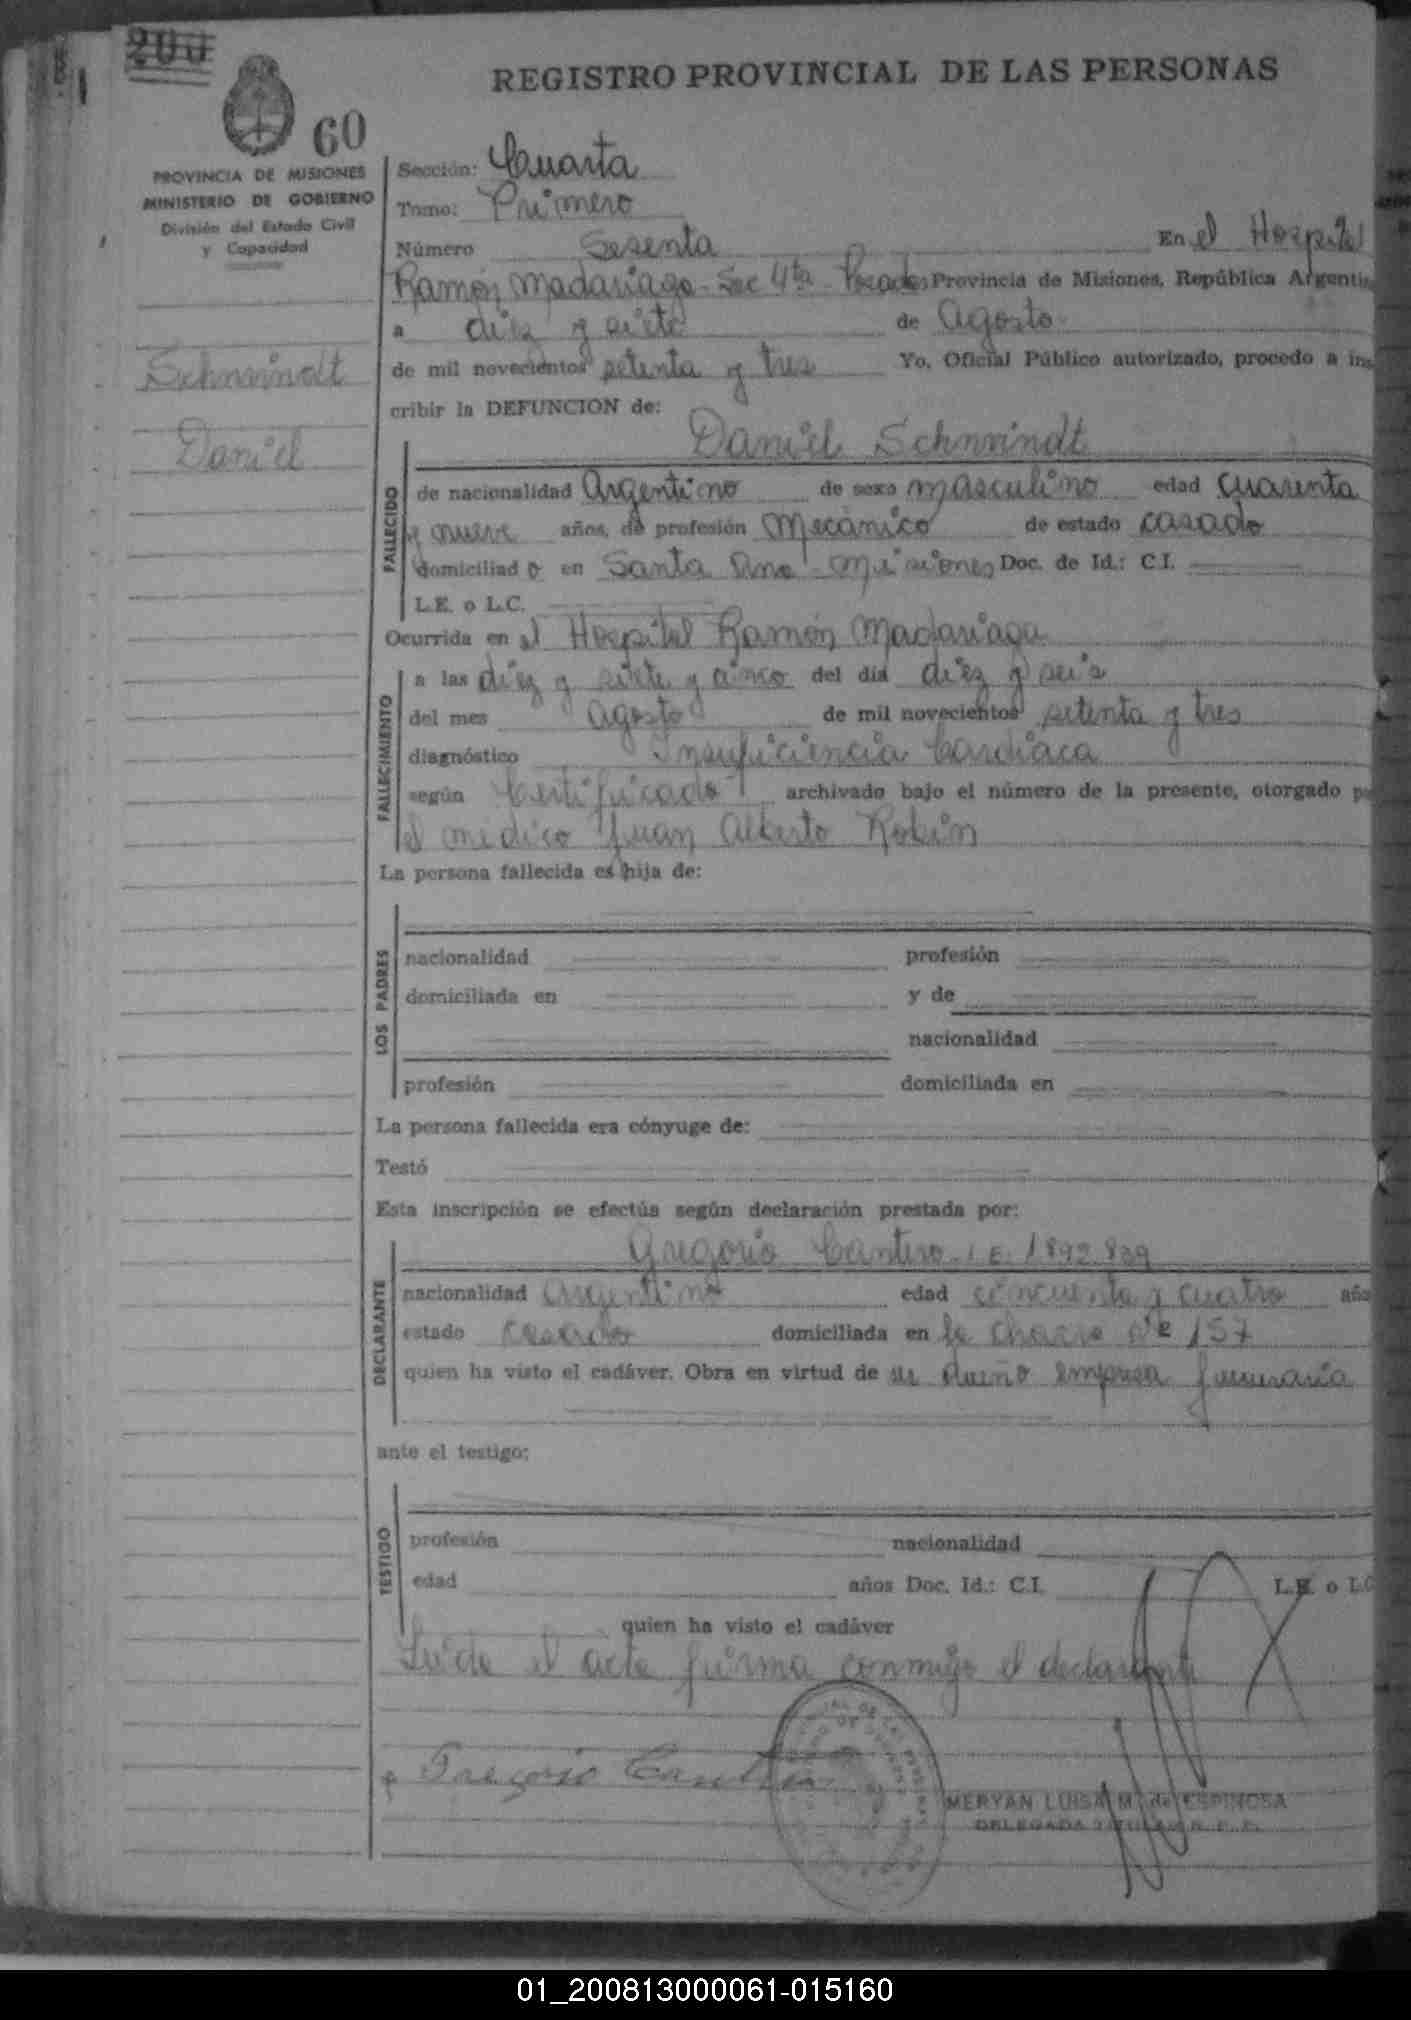 200
60
REGISTRO PROVINCIAL DE LAS PERSONAS
PROVINCIA DE MISIONES
MINISTERIO DE GOBIERNO
División del Estado Civil
y Capacidad
Schmindt
Daniel
Sección: Cuarta
Tomo: Primero
Número Sesenta En el Hospital
Ramón Madariaga - Sec 4ta - Posadas Provincia de Misiones, República Argentin
a diez y siete de Agosto
de mil novecientos setenta y tres Yo, Oficial Público autorizado, procedo a ins
cribir la DEFUNCION de:
Daniel Schmindt
FALLECIDO
de nacionalidad Argentino de sexo masculino edad cuarenta
y nueve años, de profesión Mecánico de estado casado
domiciliado en Santa Ana - Misiones Doc. de Id.: C.I.
L.E. o L.C.
Ocurrida en el Hospital Ramón Madariaga
FALLECIMIENTO
a las diez y siete y cinco del día diez y seis
del mes agosto de mil novecientos setenta y tres
diagnóstico Insuficiencia Cardíaca
según Certificado archivado bajo el número de la presente, otorgado po
el médico Juan Alberto Robin
La persona fallecida es hija de:
LOS PADRES
nacionalidad profesión
domiciliada en y de
nacionalidad
profesión domiciliada en
La persona fallecida era cónyuge de:
Testó
Esta inscripción se efectúa según declaración prestada por:
DECLARANTE
Gregorio Cantero L.E. 1892839
nacionalidad Argentino edad cincuenta y cuatro año
estado casado domiciliada en la chacra Nº 157
quien ha visto el cadáver. Obra en virtud de ser dueño empresa funeraria
ante el testigo:
TESTIGO
profesión nacionalidad
edad años Doc. Id.: C.I. L.E. o L.C
quien ha visto el cadáver
Leída el acta firma conmigo el declarante
Gregorio Cantero
MERYAN LUISA M. de ESPINOSA
DELEGADA TITULAR R. P. P.
01_200813000061-015160